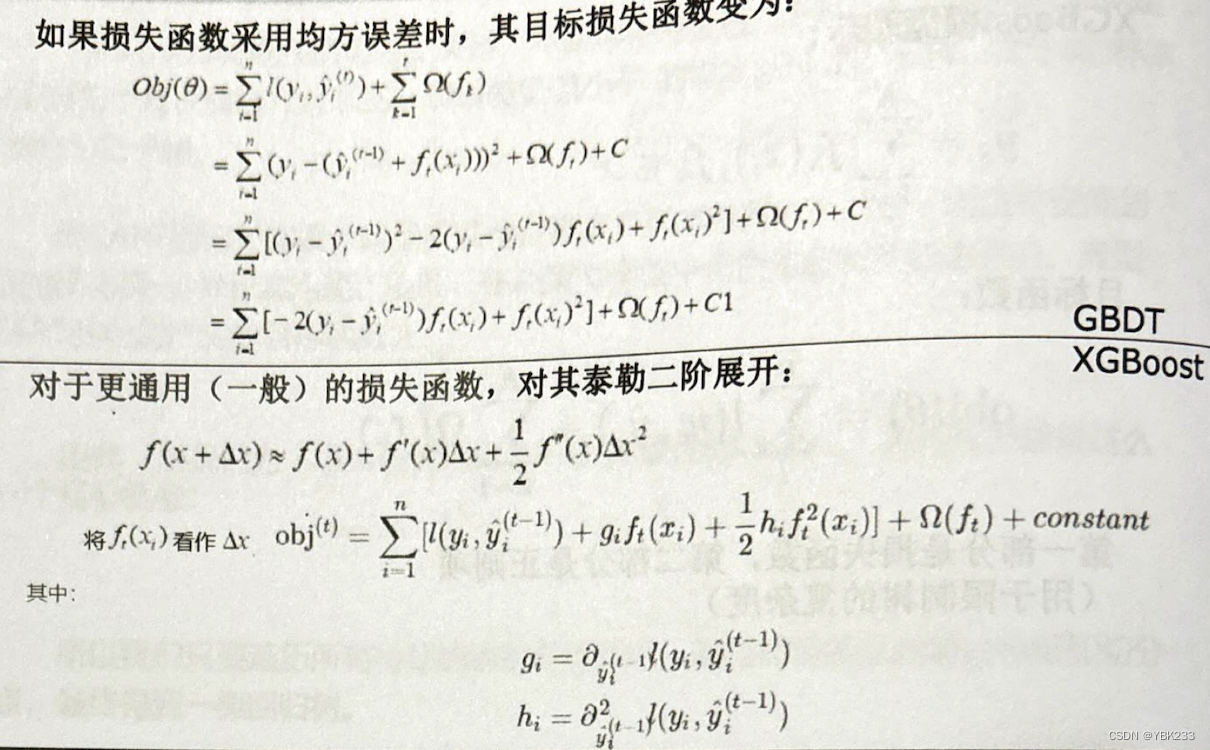 如果损失函数采用均方误差时，其目标损失函数变为：
Obj(θ) = \sum_{i=1}^{n} l(y_i, ŷ_i^{(t)}) + \sum_{k=1}^{t} Ω(f_k)
= \sum_{i=1}^{n} (y_i − (ŷ_i^{(t−1)} + f_t(x_i)))^2 + Ω(f_t) + C
= \sum_{i=1}^{n} [(y_i − ŷ_i^{(t−1)})^2 − 2(y_i − ŷ_i^{(t−1)}) f_t(x_i) + f_t(x_i)^2] + Ω(f_t) + C
= \sum_{i=1}^{n} [−2(y_i − ŷ_i^{(t−1)}) f_t(x_i) + f_t(x_i)^2] + Ω(f_t) + C1
GBDT
XGBoost
对于更通用（一般）的损失函数，对其泰勒二阶展开：
f(x + Δx) ≈ f(x) + f′(x)Δx + \frac{1}{2} f″(x)Δx^2
将 f_t(x_i) 看作 Δx obj^{(t)} = \sum_{i=1}^{n} [l(y_i, ŷ_i^{(t−1)}) + g_i f_t(x_i) + \frac{1}{2} h_i f_t^2(x_i)] + Ω(f_t) + constant
其中：
g_i = ∂_{ŷ_i^{(t−1)}} l(y_i, ŷ_i^{(t−1)})
h_i = ∂^2_{ŷ_i^{(t−1)}} l(y_i, ŷ_i^{(t−1)})
CSDN @YBK233